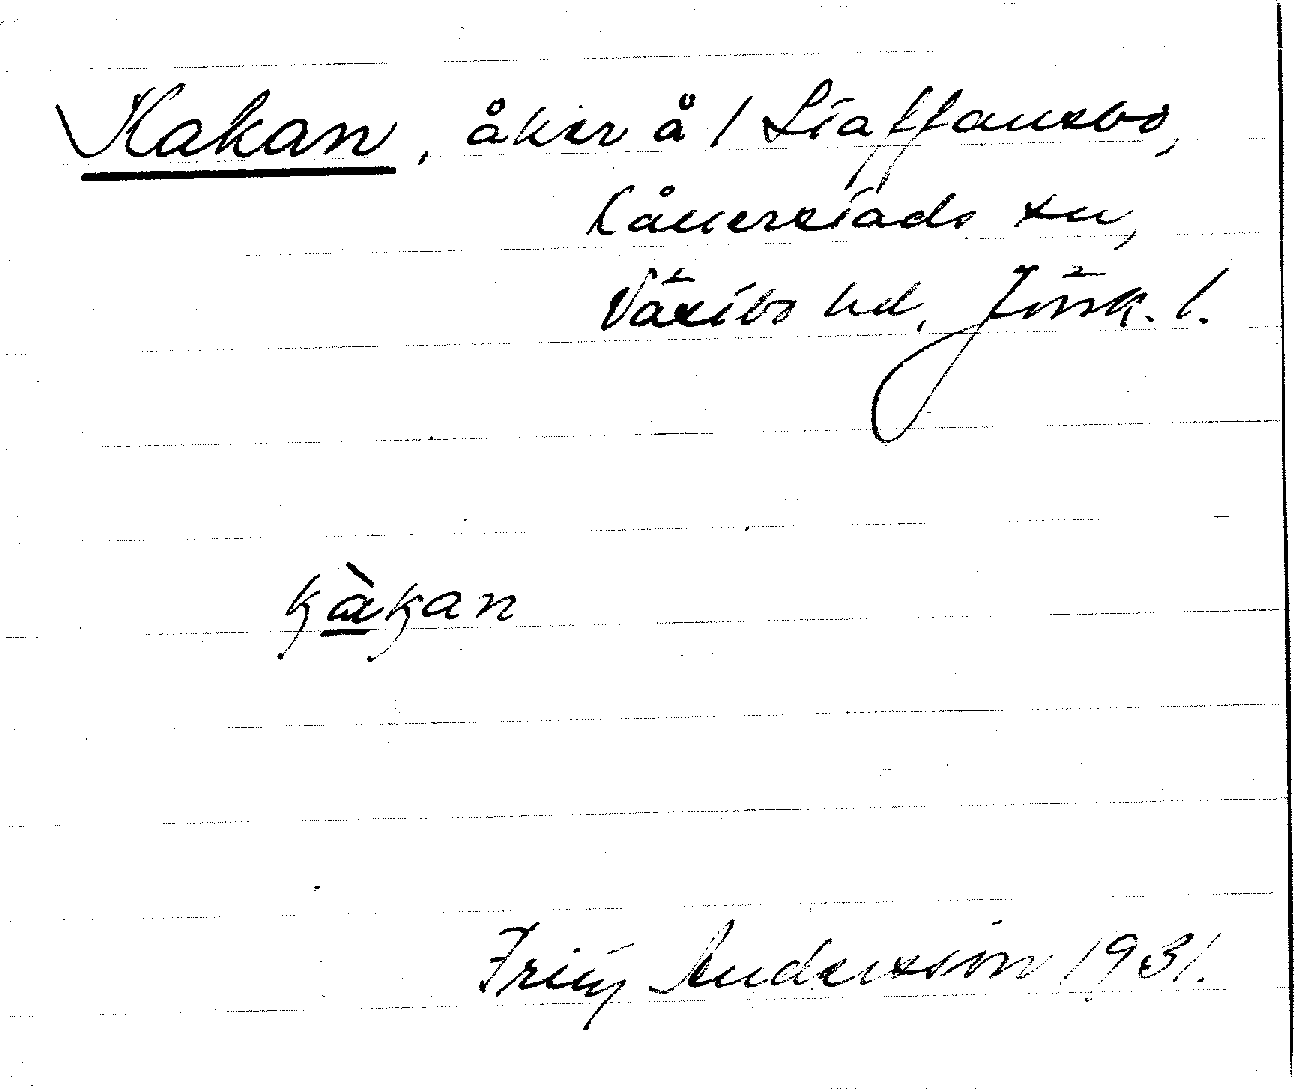 Kakan, åker å 1 Staffansbo,
Kånerstads sn,
Västbo hd, Jönk. l.
kàkan
Fritz Andersson 1931.